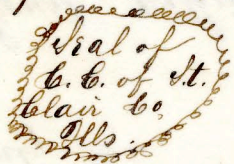 Seal of
C. C. of St.
Clair Co,
Ills.